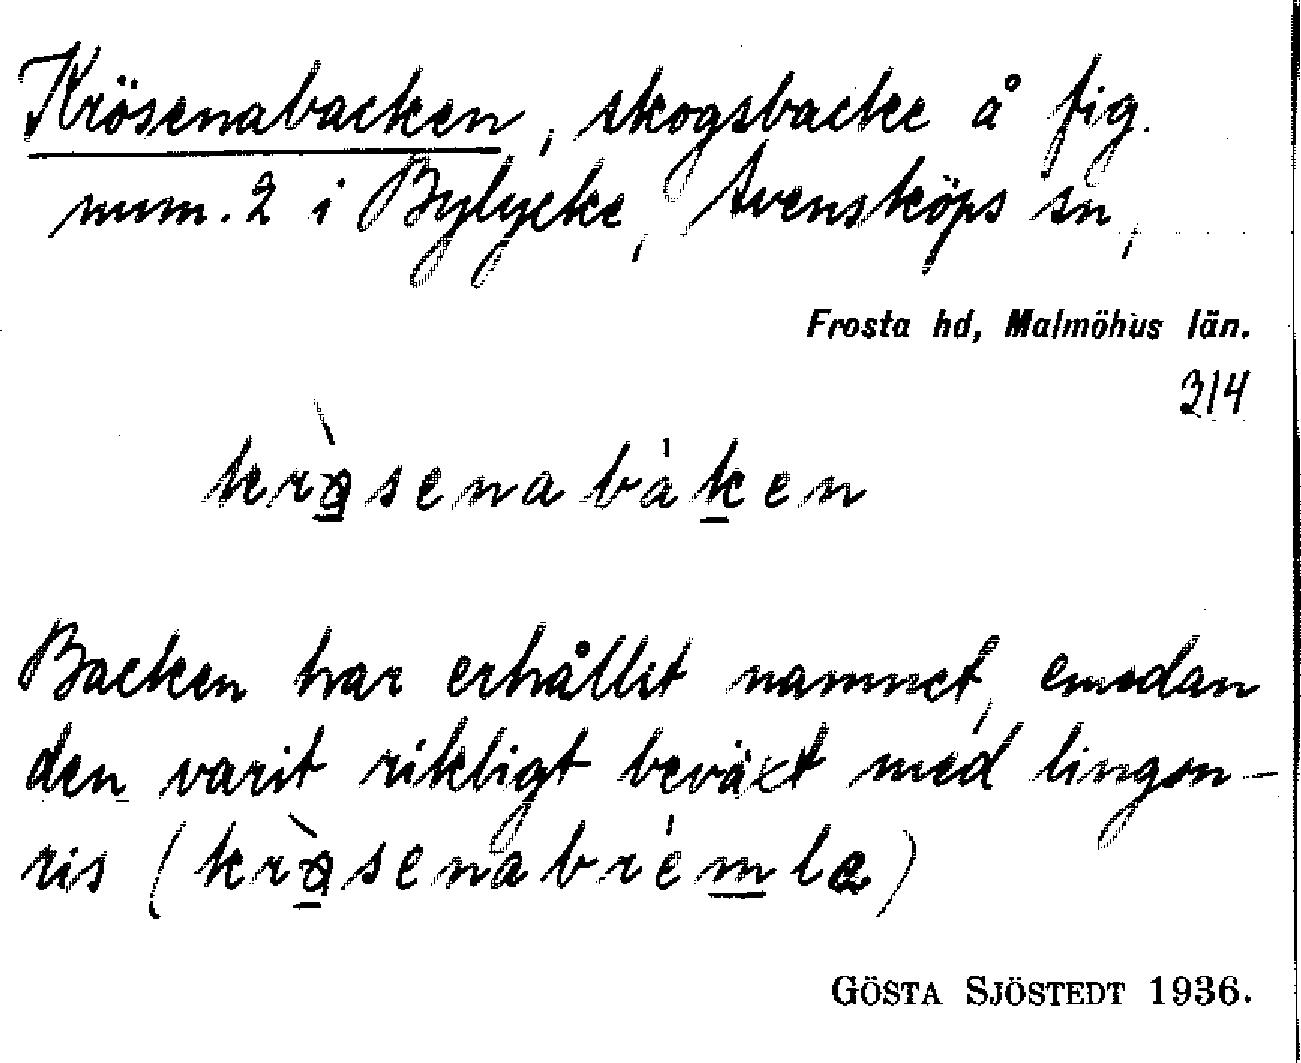 Krösenabacken, skogsbacke å fig.
num. 2 i Bylycke, Svensköps sn,
Frosta hd, Malmöhus län.
314
krə̀senabàken
Backen har erhållit namnet, emedan
den varit rikligt beväxt med lingon-
ris (krə̀senabrémla)
GÖSTA SJÖSTEDT 1936.